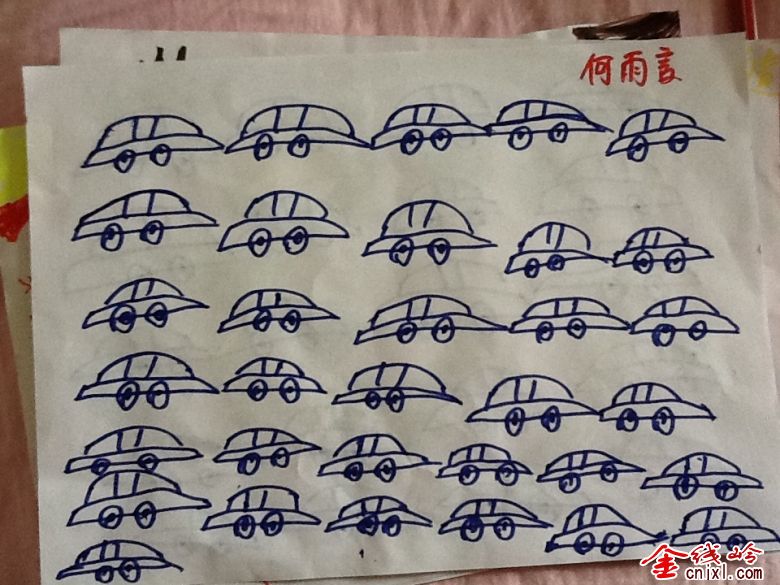 何雨言
1
金线岭
cnixl.com